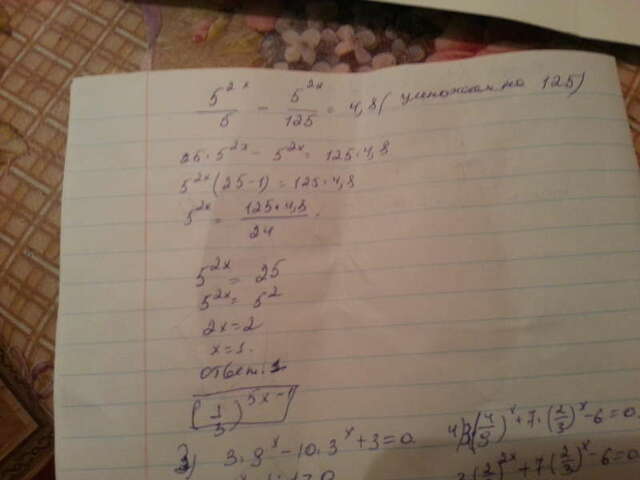 5^2x/5 − 5^2x/125 = 4,8 (умножаем на 125)
25·5^2x − 5^2x = 125·4,8
5^2x(25−1) = 125·4,8
5^2x = 125·4,8/24
5^2x = 25
5^2x = 5^2
2x=2
x=1.
ответ: 1
5x−1
3·9^x −10·3^x +3=0
(4/9)^x +7·(2/3)^x −6=0
(2/3)^2x +7(2/3)^x −6=0